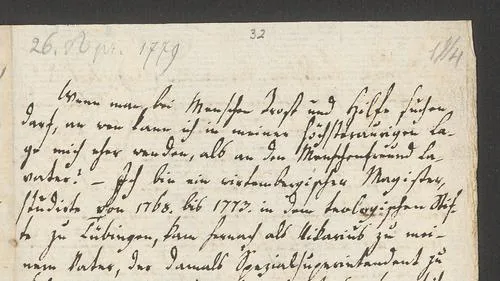 32
26. Apr. 1779
Wenn man bei Menschen Trost und Hilfe suchen
darf, an wen kann ich in meiner höchsttraurigen La-
ge mich eher wenden, als an den Menschenfreund La-
vater? – Ich bin ein wirtenbergischer Magister,
studirte von 1768. bis 1773. in dem teologischen Stif-
te zu Tübingen, kam hernach als Vikarius zu mei-
nem Vater, der damals Spezialsuperintendent zu